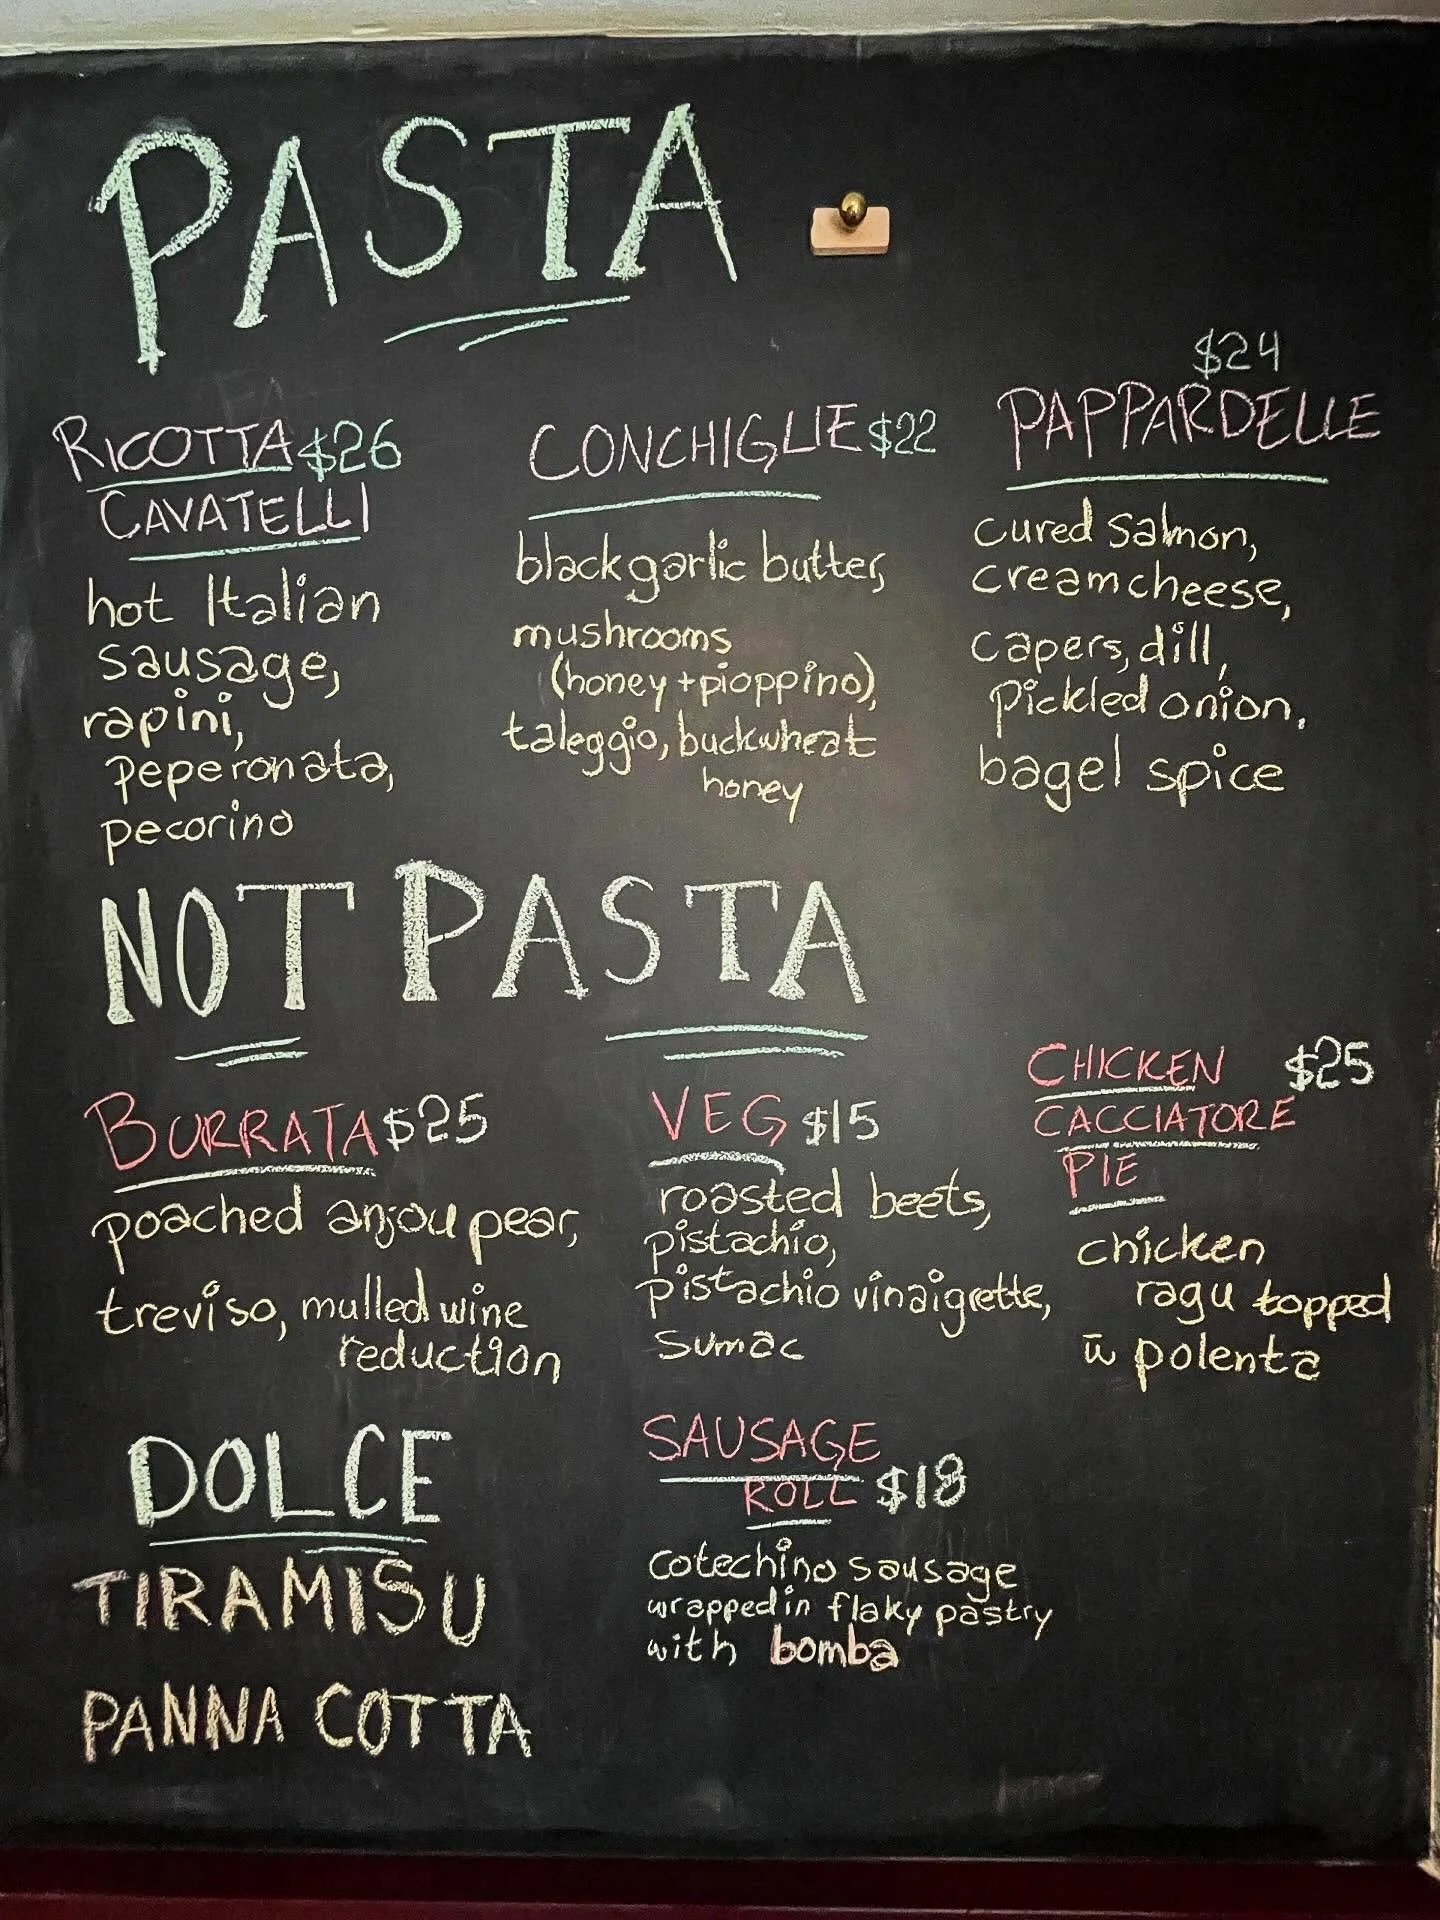 PASTA
RICOTTA $26
CAVATELLI
hot Italian
sausage,
rapini,
peperonata,
pecorino
CONCHIGLIE $22
black garlic butter,
mushrooms
(honey + pioppino),
taleggio, buckwheat
honey
$24
PAPPARDELLE
cured salmon,
creamcheese,
capers, dill,
pickled onion,
bagel spice
NOT PASTA
BURRATA $25
poached anjou pear,
treviso, mulled wine
reduction
VEG $15
roasted beets,
pistachio,
pistachio vinaigrette,
sumac
CHICKEN $25
CACCIATORE
PIE
chicken
ragu topped
w̄ polenta
DOLCE
TIRAMISU
PANNA COTTA
SAUSAGE
ROLL $18
cotechino sausage
wrapped in flaky pastry
with bomba